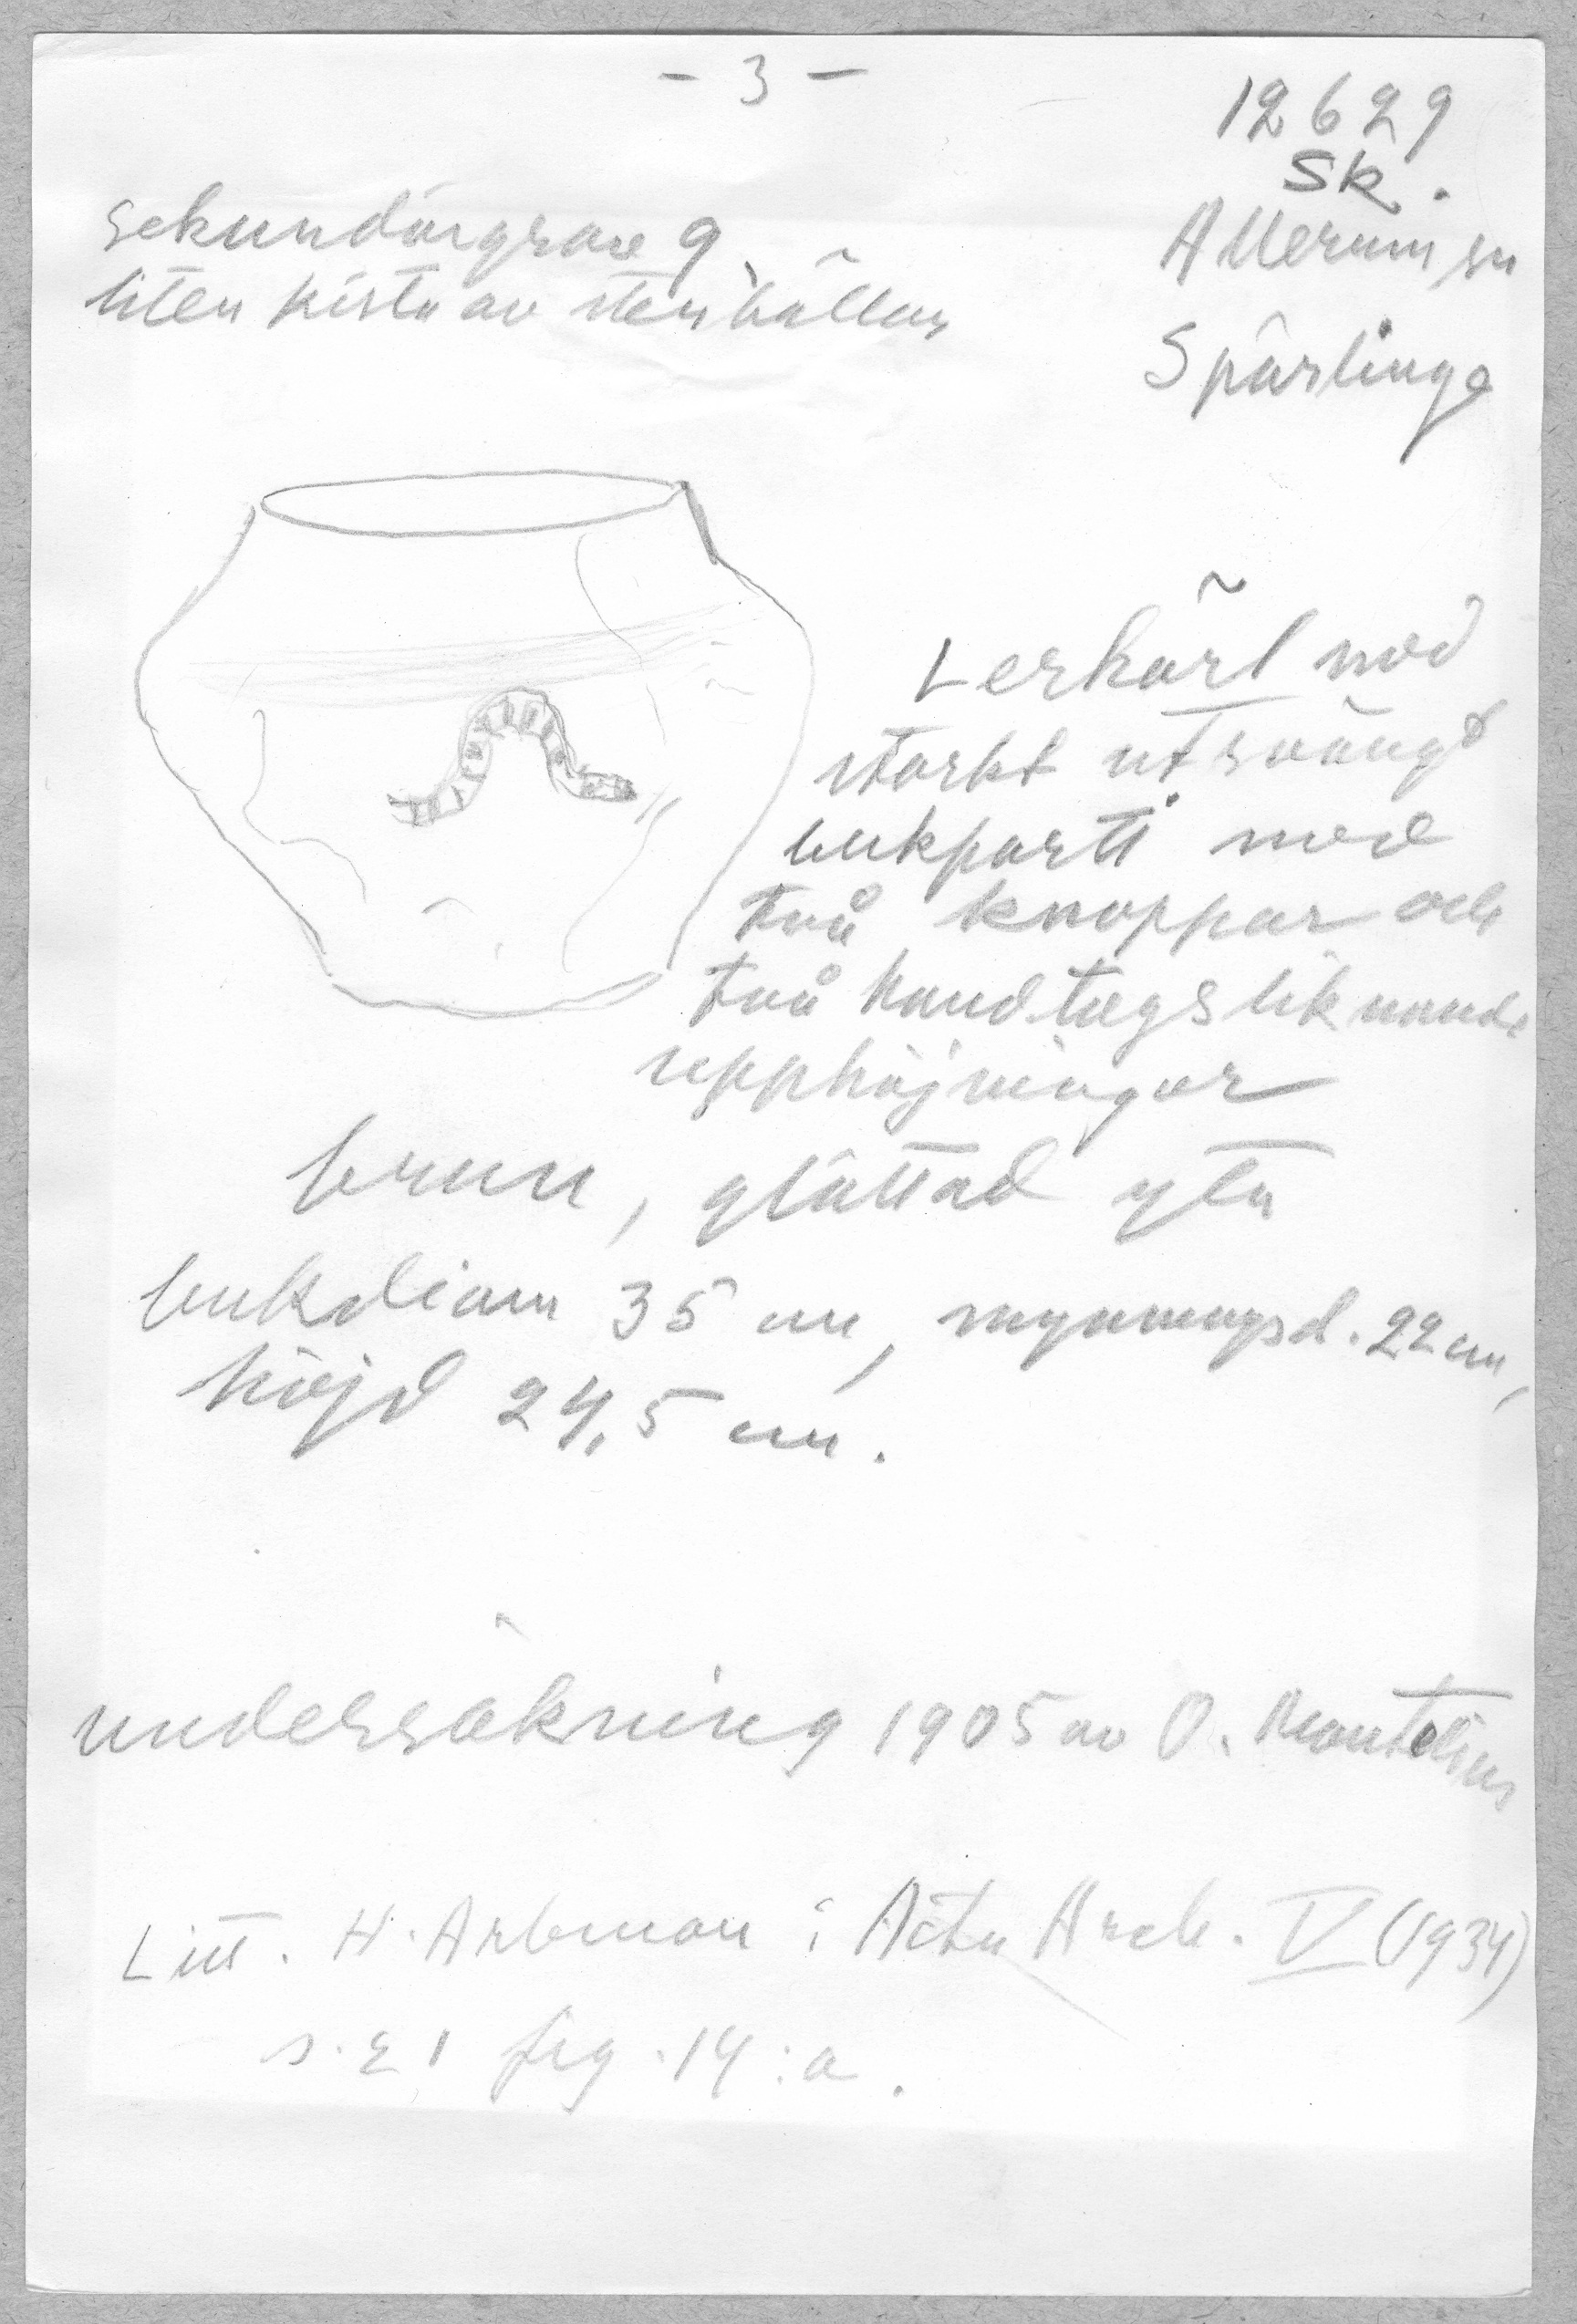 - 3 -
12629
Sk.
Allerum sn
Spårlinge
Sekundärgrav 9
liten kista av stenhällar
Lerkärl med
starkt utsvängt
bukparti med
två knoppar och
två handtagsliknande
upphöjningar
brun, glättad yta
bukdiam 35 cm, mynningsd. 22 cm,
höjd 24,5 cm.
undersökning 1905 av O. Montelius
Litt. H. Arbman i Acta Arch. V (1934)
s. 21 fig. 14:a.